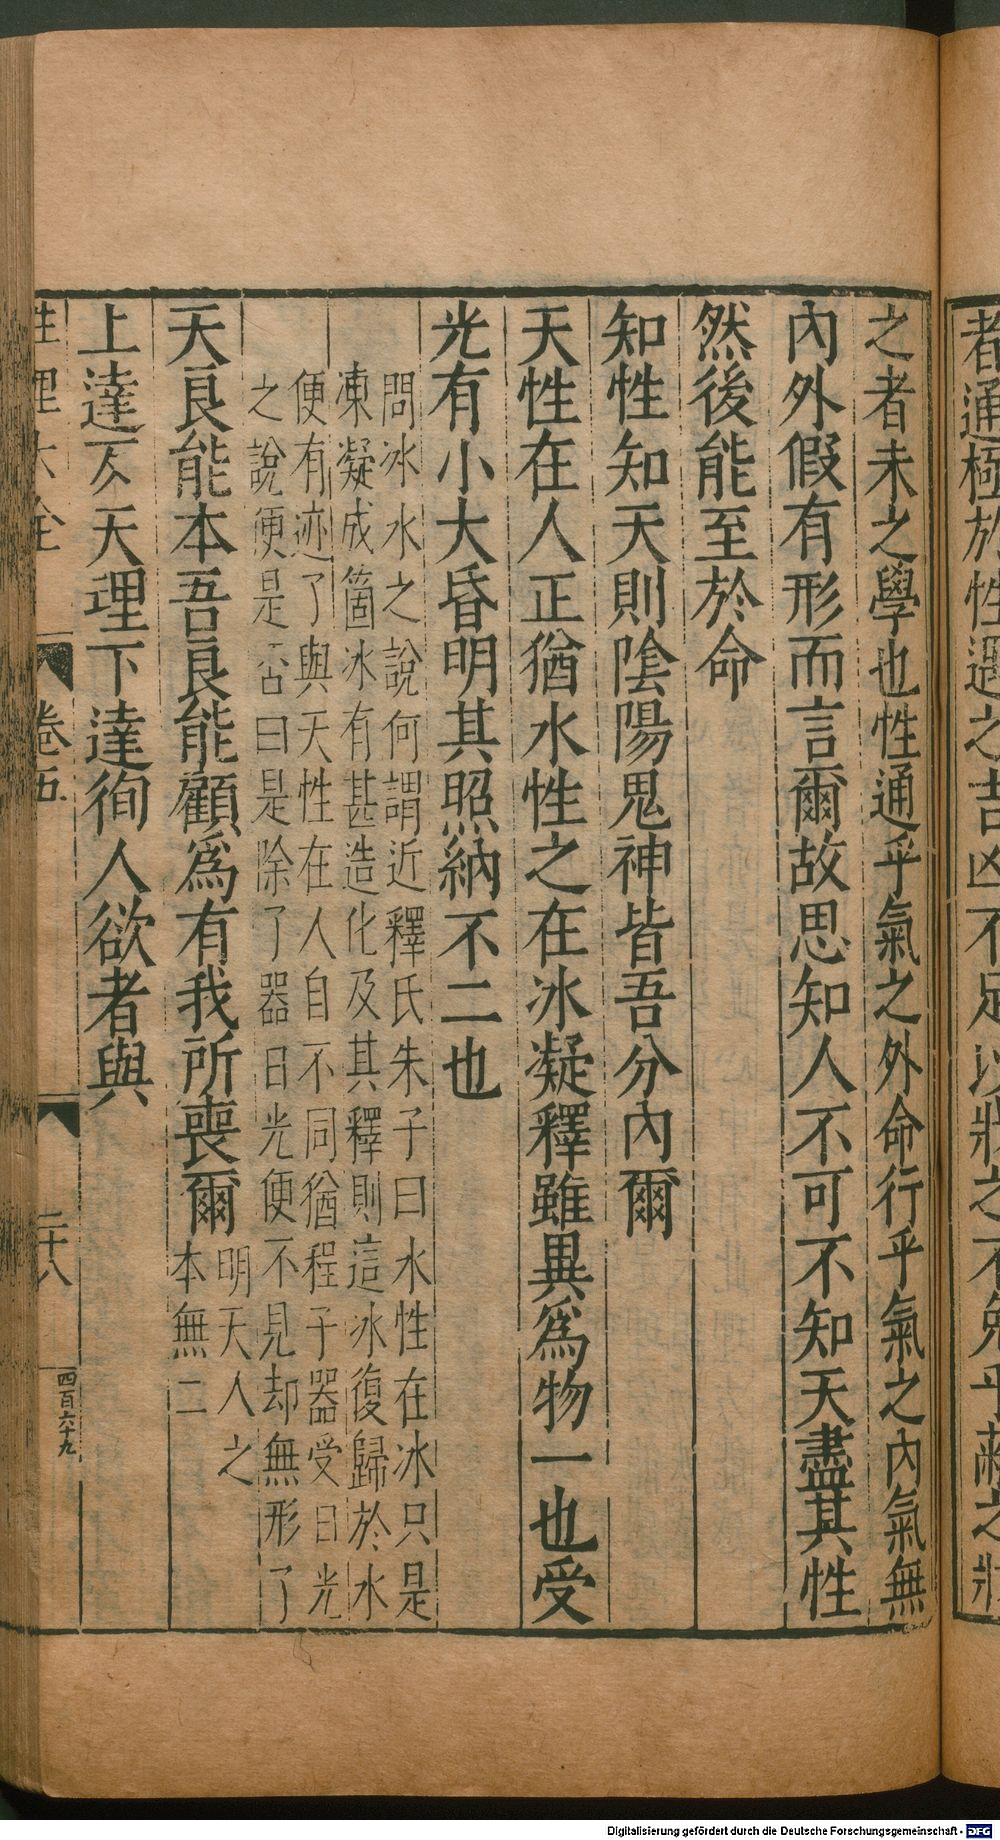 都通極於性遇之吉凶不足以戕之不免乎蔽之戕
之者未之學也性通乎氣之外命行乎氣之內氣無
內外假有形而言爾故思知人不可不知天盡其性
然後能至於命
知性知天則陰陽鬼神皆吾分內爾
天性在人正猶水性之在冰凝釋雖異爲物一也受
光有小大昏明其照納不二也
問冰水之說何謂近釋氏朱子曰水性在冰只是
凍凝成箇冰有甚造化及其釋則這冰復歸於水
便有迹了與天性在人自不同猶程子器受日光
之說便是否曰是除了器日光便不見却無形了
天良能本吾良能顧爲有我所喪爾
明天人之
本無二
上達反天理下達徇人欲者與
性理大全
卷五
二十八
四百六十九
Digitalisierung gefördert durch die Deutsche Forschungsgemeinschaft - DFG